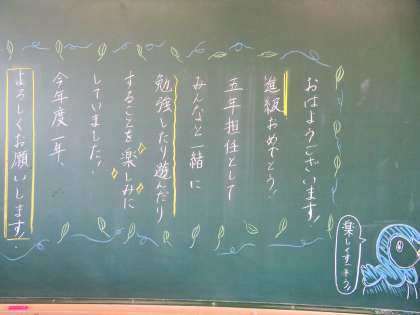 おはようございます。
進級おめでとう!
五年担任として
みんなと一緒に
勉強したり遊んだり
することを楽しみに
していました!
今年度一年、
よろしくお願いします。
楽しくすごそう!